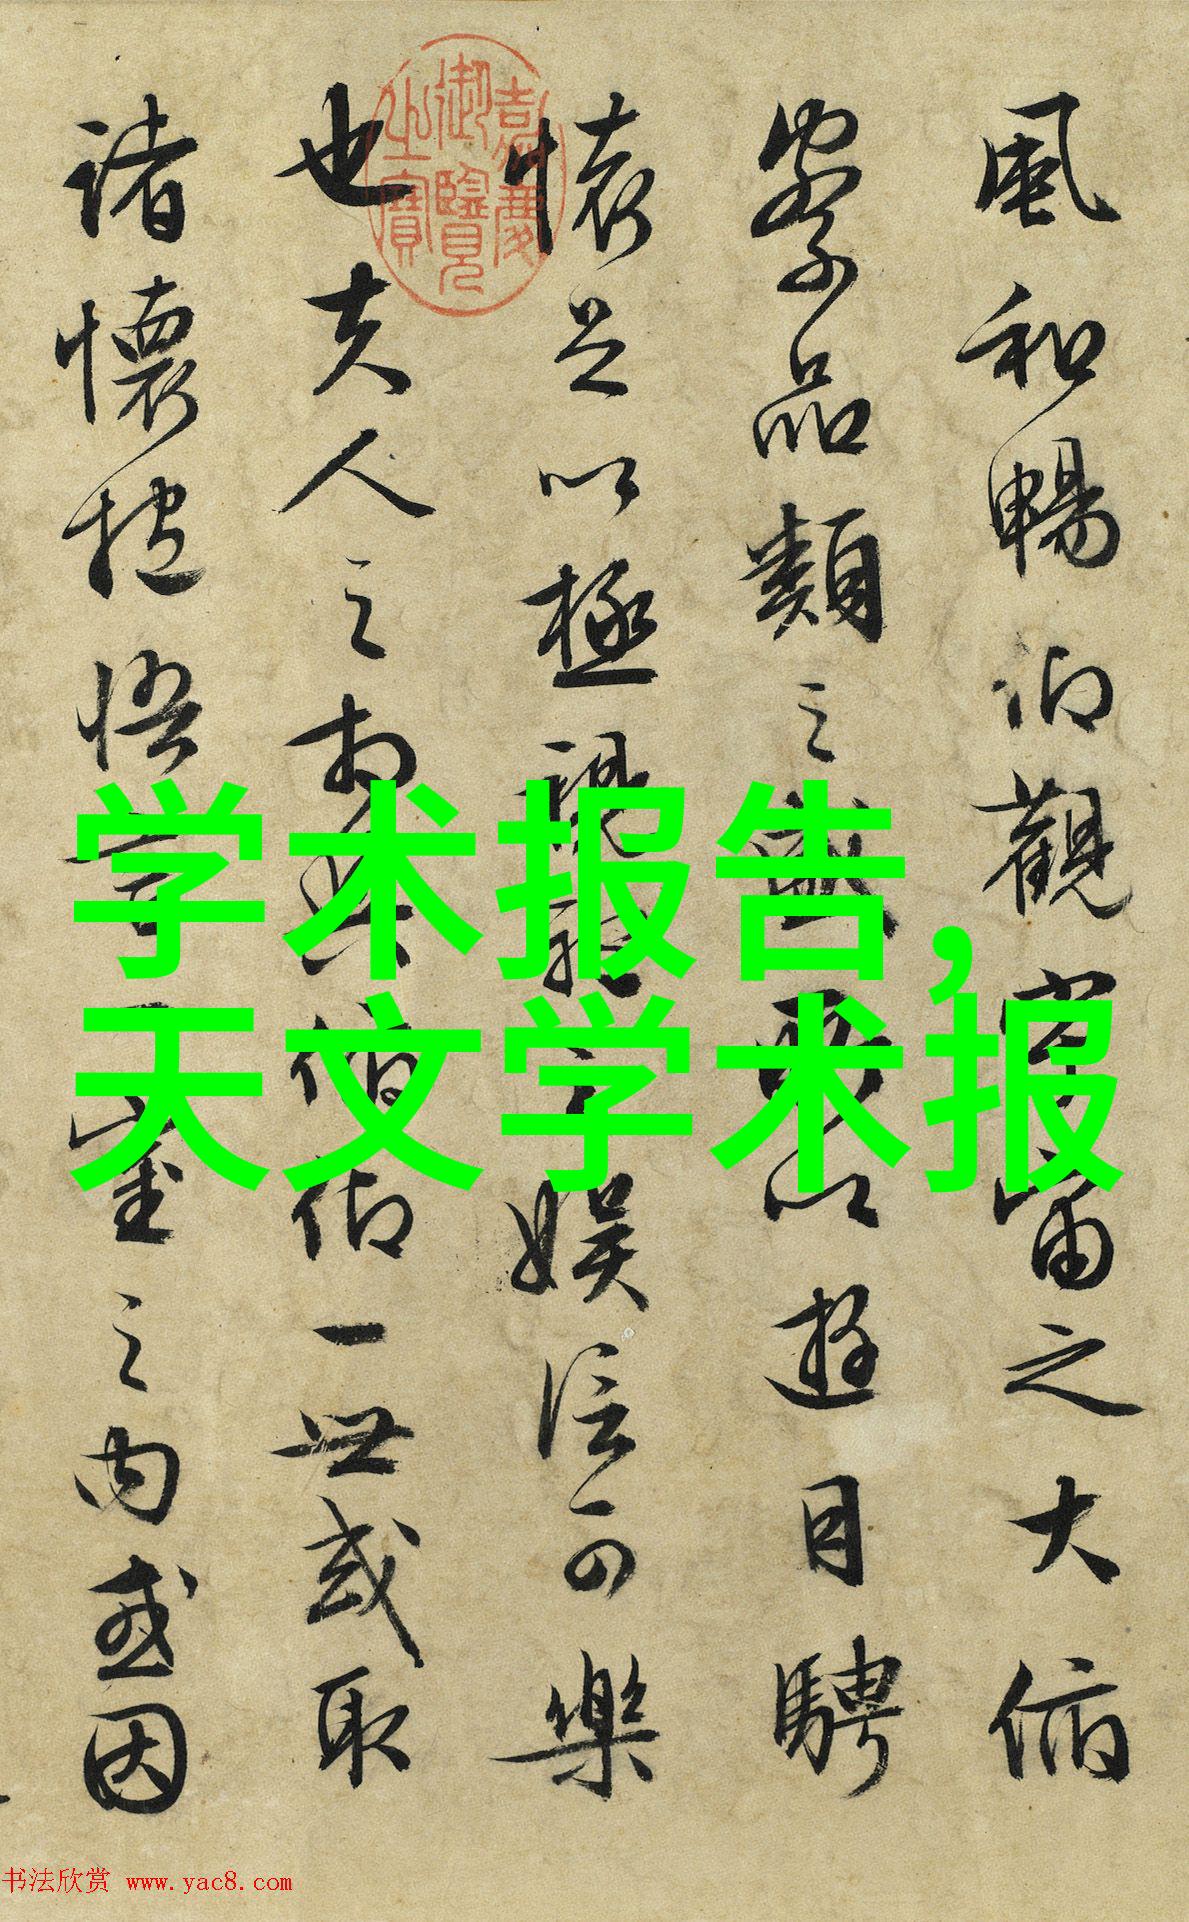 風和暢仰觀宇宙之大俯
察品類之盛所以遊目騁
懷足以極視聽之娛信可樂
也夫人之相與俯仰一世或取
諸懷抱悟言一室之內或因
嘉慶御覽之寶
学术报告，
天文学术报
书法欣赏 www.yac8.com